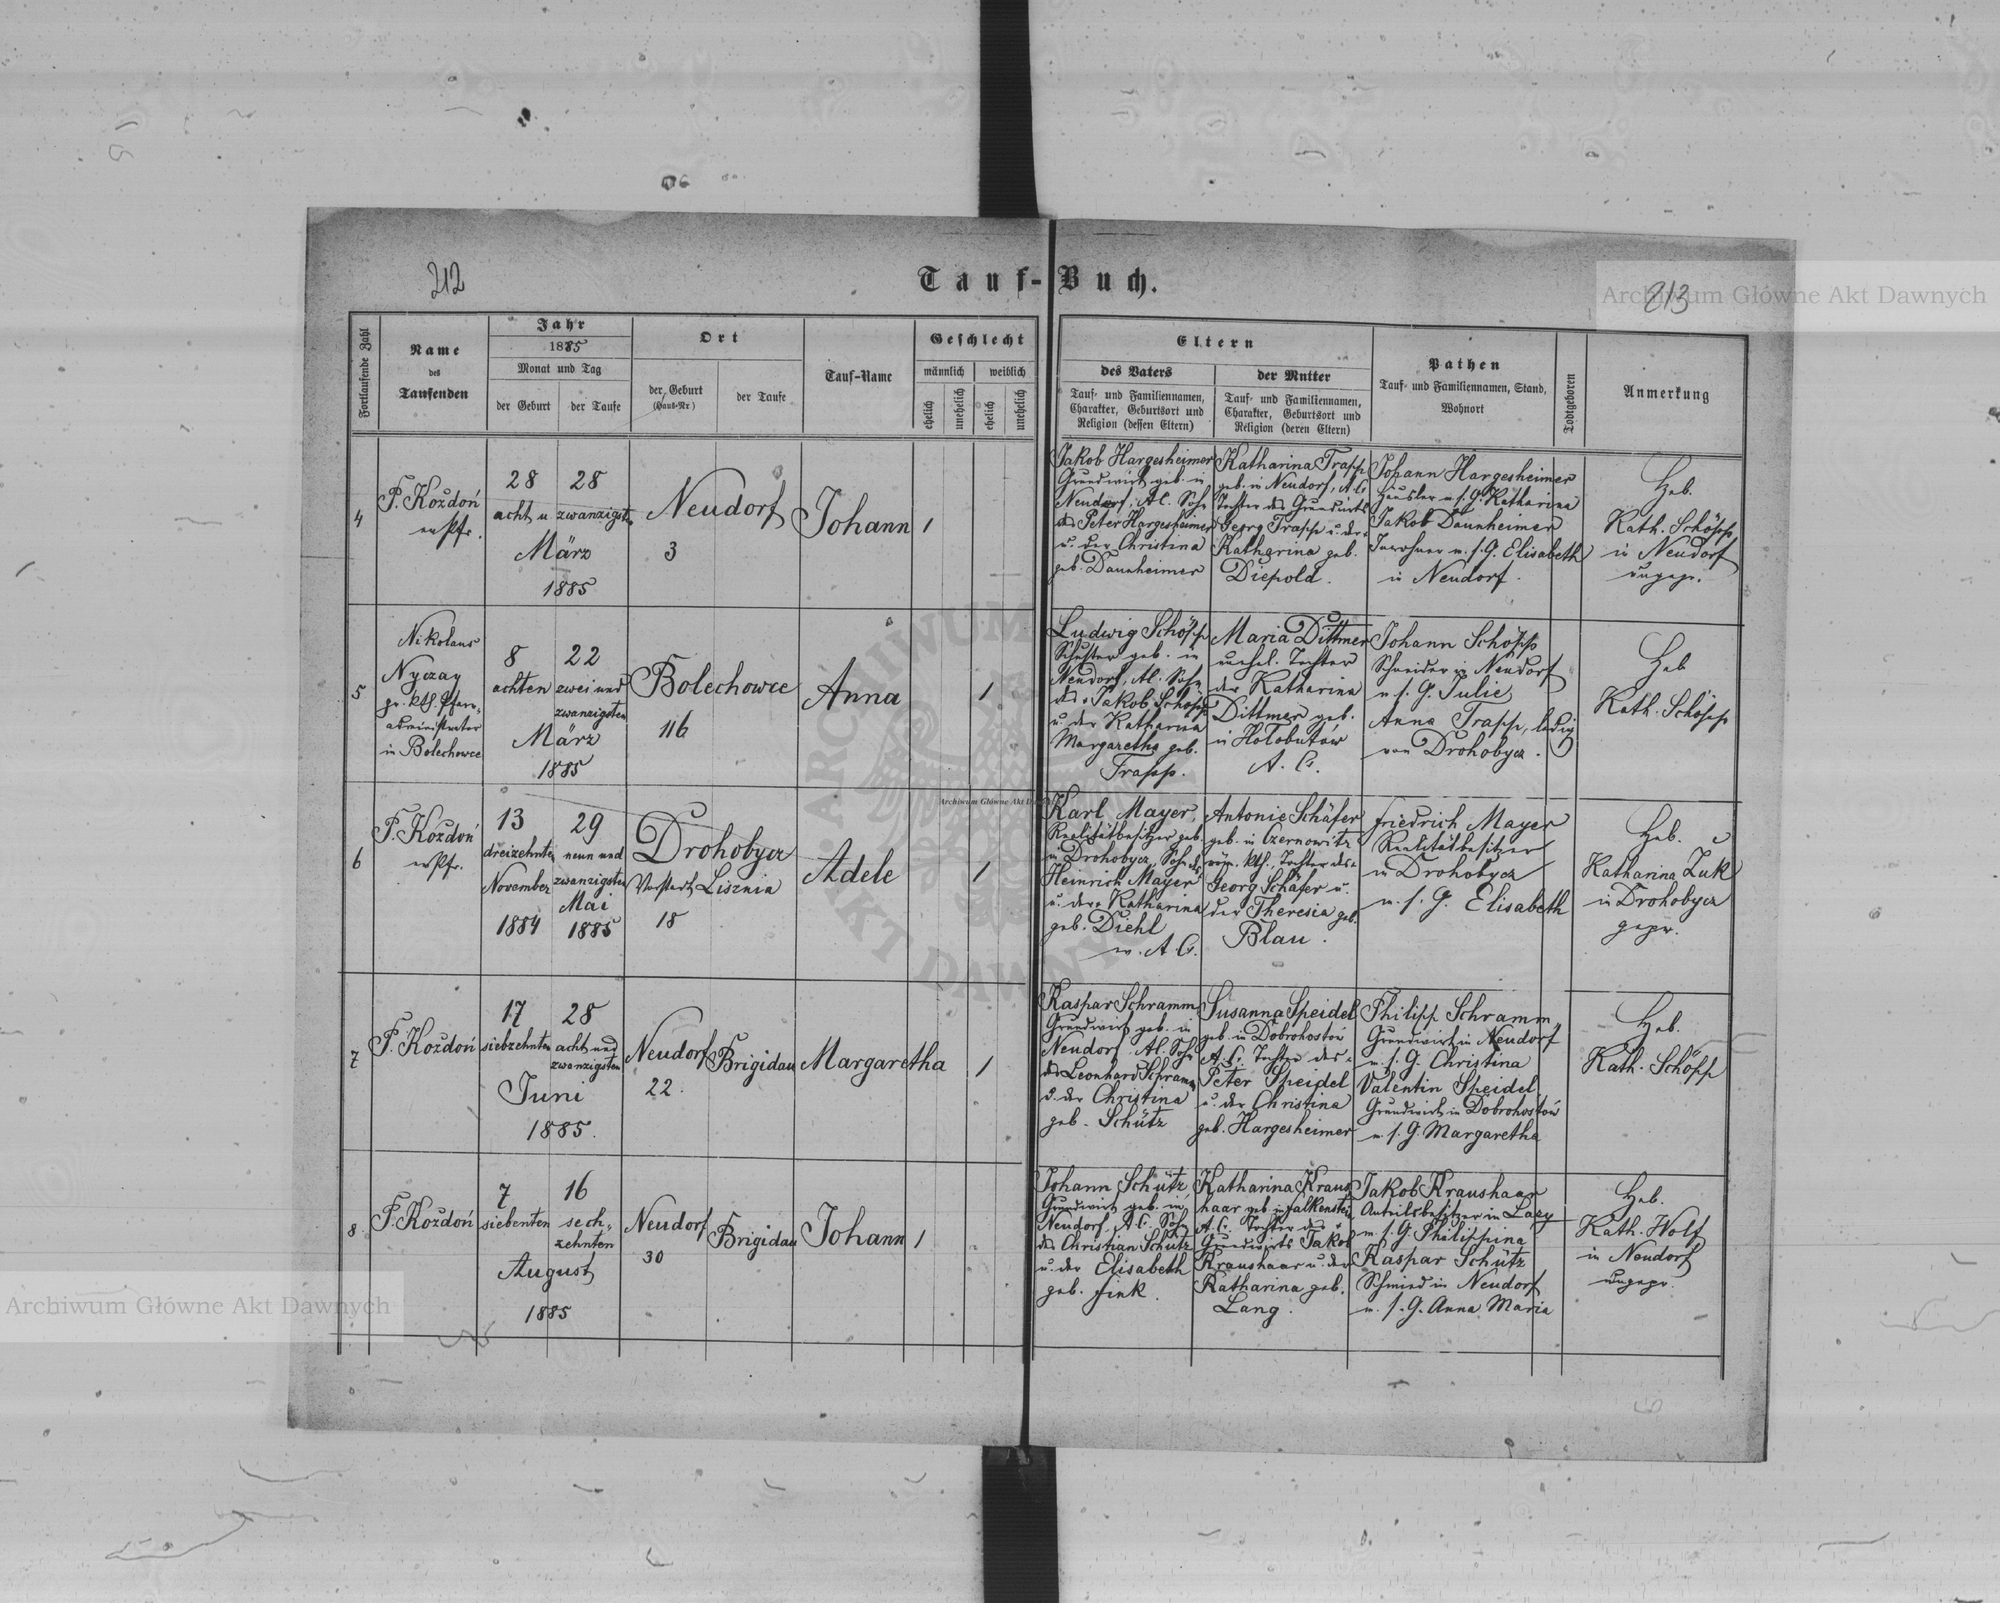 212
Tauf-Buch.
213
Fortlaufende Zahl
Name
des
Taufenden
Jahr
1885
Monat und Tag
der Geburt
der Taufe
Ort
der Geburt
(Haus-Nr.)
der Taufe
Tauf-Name
Geschlecht
männlich
weiblich
ehelich
unehelich
ehelich
unehelich
Eltern
des Vaters
Tauf- und Familiennamen,
Charakter, Geburtsort und
Religion (dessen Eltern)
der Mutter
Tauf- und Familiennamen,
Charakter, Geburtsort und
Religion (deren Eltern)
Pathen
Tauf- und Familiennamen, Stand,
Wohnort
Todtgeboren
Anmerkung
4
F. Koždoń
ev. Pfr.
28
acht u
28
zwanzigst
März
1885
Neudorf
3
Johann
1
Jakob Hargesheimer
Grundwirt geb. in
Neudorf, A.C. Sohn
des Peter Hargesheimer
u. der Christina
geb. Dannheimer
Katharina Trapp
geb. in Neudorf, A.C.
Tochter des Grundwirts
Georg Trapp u. der
Katharina geb.
Diepold.
Johann Hargesheimer
Häusler u. s. G. Katharina
Jakob Dannheimer
Inwohner u. s. G. Elisabeth
in Neudorf.
Heb.
Kath. Schöpp
in Neudorf
ungepr.
5
Nikolaus
Nyczay
gr. kth. Pfarr-
administrator
in Bolechowce
8
achten
22
zwei und
zwanzigsten
März
1885
Bolechowce
116
Anna
1
Ludwig Schöpp
Schuster geb. in
Neudorf, A.C. Sohn
des Jakob Schöpp
u. der Katharina
Margaretha geb.
Trapp.
Maria Dittmer
unehel. Tochter
der Katharina
Dittmer geb.
in Hołobutów
A. C.
Johann Schöpp
Schneider in Neudorf
u. s. G. Julie
Anna Trapp, ledig
von Drohobycz.
Heb
Kath. Schöpp
6
F. Koždoń
ev. Pfr.
13
dreizehnten
November
1884
29
neun und
zwanzigsten
Mai
1885
Drohobycz
Vorstadt Lisznia
18
Adele
1
Karl Mayer,
Realitätbesitzer geb.
in Drohobycz, Sohn des
Heinrich Mayer
u. der Katharina
geb. Diehl
A. C.
Antonie Schäfer
geb. in Czernowitz
röm. kth., Tochter des
Georg Schäfer u.
der Theresia geb.
Blau.
Friedrich Mayer
Realitätbesitzer
in Drohobycz
u. s. G. Elisabeth
Heb.
Katharina Żuk
in Drohobycz
gepr.
7
F. Koždoń
17
siebzehnten
28
acht und
zwanzigsten
Juni
1885.
Neudorf
22.
Brigidau
Margaretha
1
Kaspar Schramm
Grundwirt geb. in
Neudorf, A.C. Sohn
des Leonhard Schramm
u. der Christina
geb. Schütz
Susanna Speidel
geb. in Dobrohostów
A.C. Tochter des
Peter Speidel
u. der Christina
geb. Hargesheimer
Philipp Schramm,
Grundwirt in Neudorf
u. s. G. Christina
Valentin Speidel
Grundwirt in Dobrohostów
u. s. G. Margaretha
Heb.
Kath. Schöpp
8
F. Koždoń
7
siebenten
16
sech-
zehnten
August
1885
Neudorf
30
Brigidau
Johann
1
Johann Schütz,
Grundwirt geb. in
Neudorf, A.C. Sohn
des Christian Schütz
u. der Elisabeth
geb. Fink.
Katharina Kraus
haar geb. in Falkenstein
A.C. Tochter des
Grundwirts Jakob
Kraushaar u. der
Katharina geb.
Lang.
Jakob Kraushaar
Anteilsbesitzer in Lazy
u. s. G. Philippina
Kaspar Schütz
Schmied in Neudorf
u. s. G. Anna Maria
Heb.
Kath. Wolf
in Neudorf
ungepr.
Archiwum Główne Akt Dawnych
Archiwum Główne Akt Dawnych
Archiwum Główne Akt Dawnych
ARCHIWUM
AKT DAWNYCH